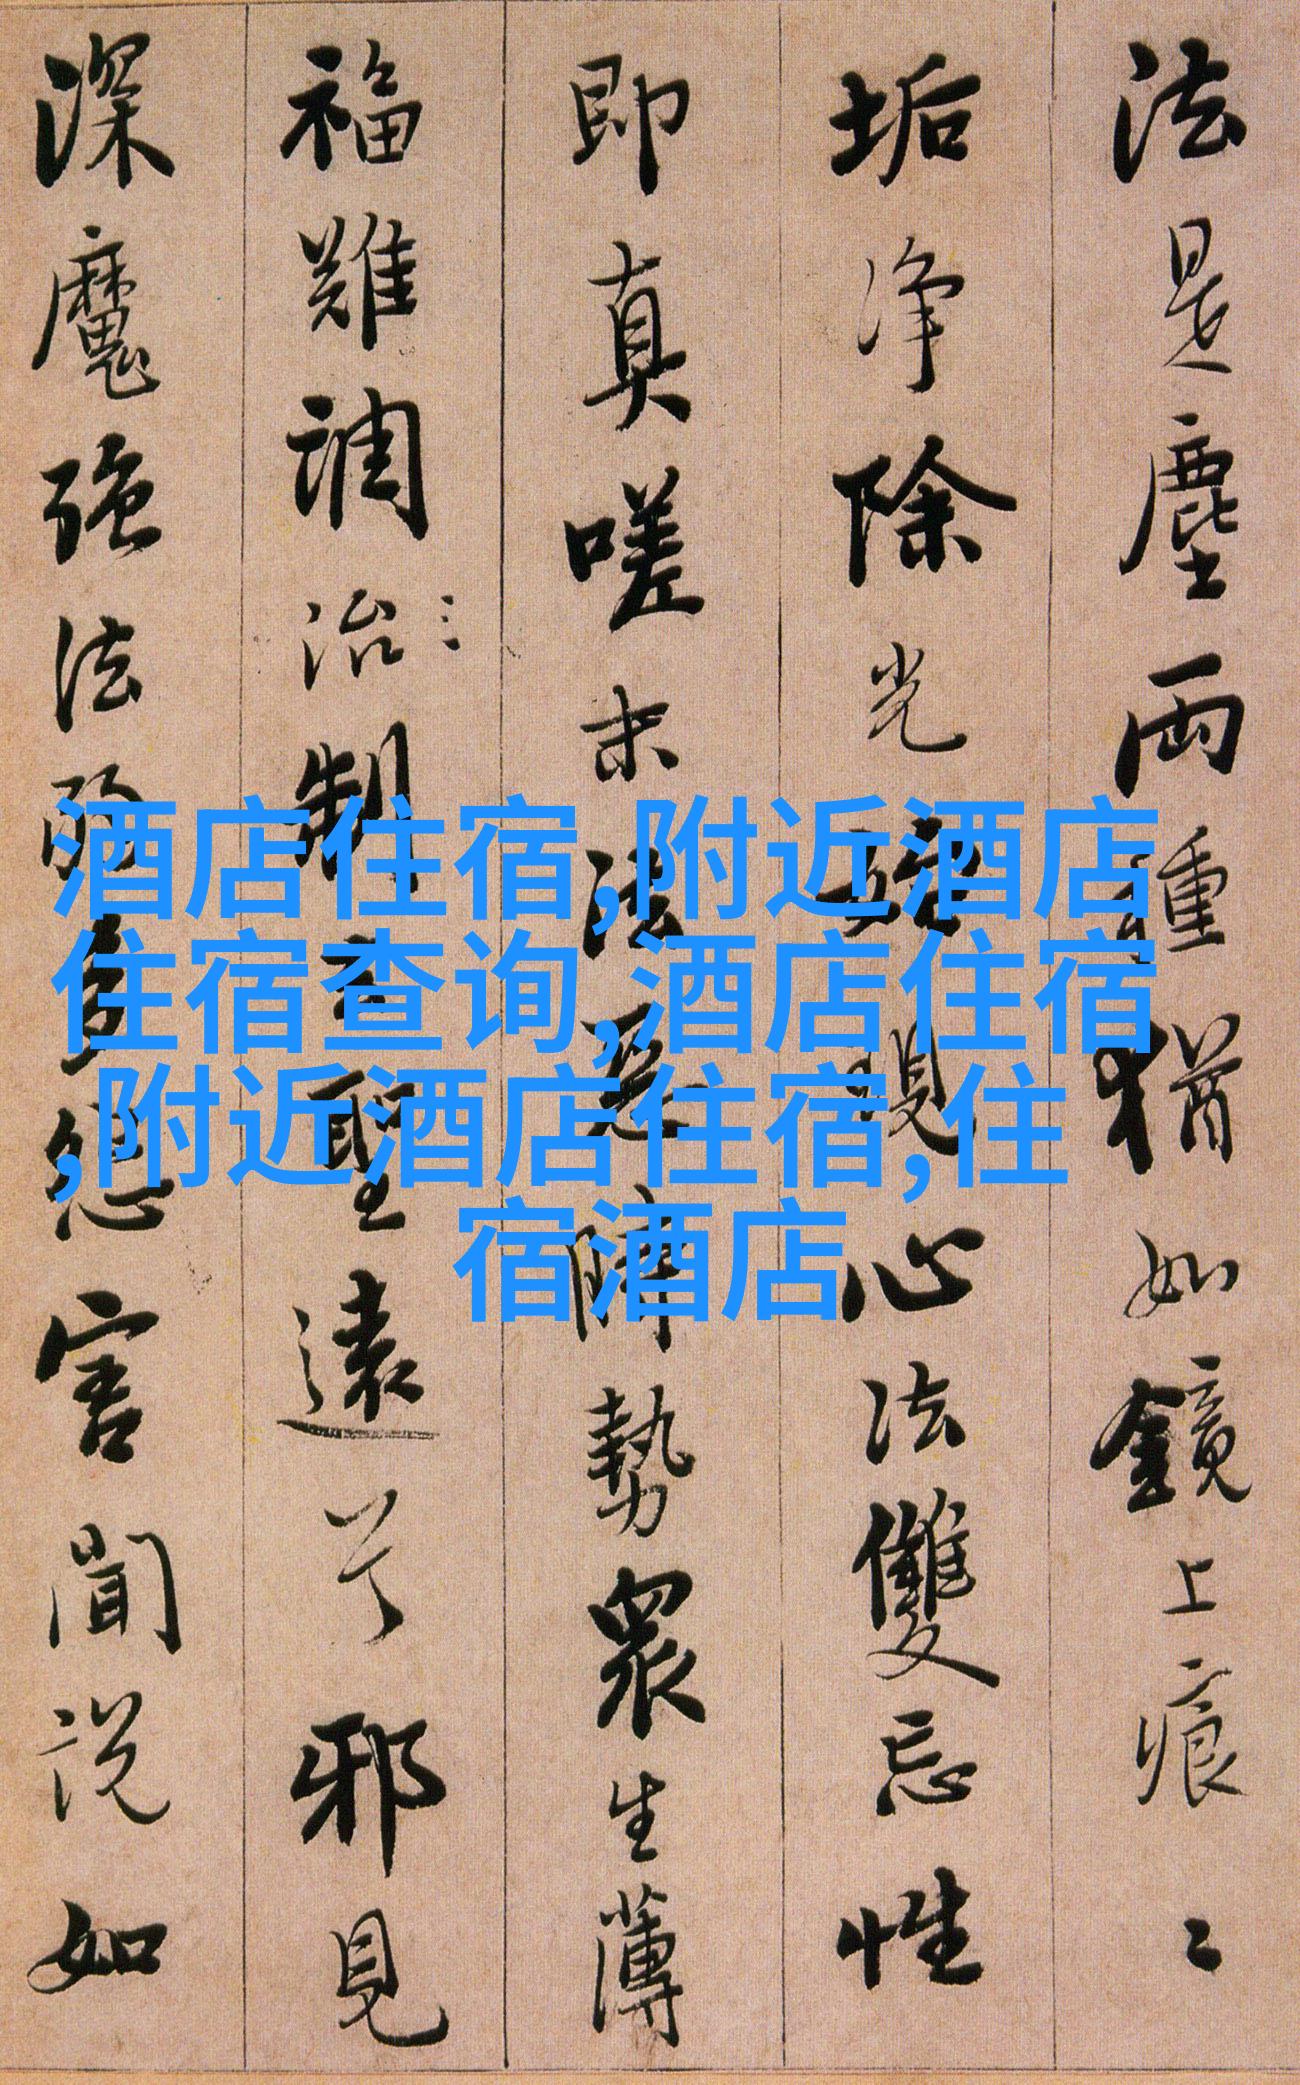 法是塵兩種猶如鏡上痕〻
垢浄除光始現心法雙忘性
即真嗟末法惡時勢衆生薄
福難調治制去聖遠兮邪見
深魔強法弱多怨害聞說如
酒店住宿,附近酒店
住宿查询,酒店住宿
,附近酒店住宿,住
宿酒店